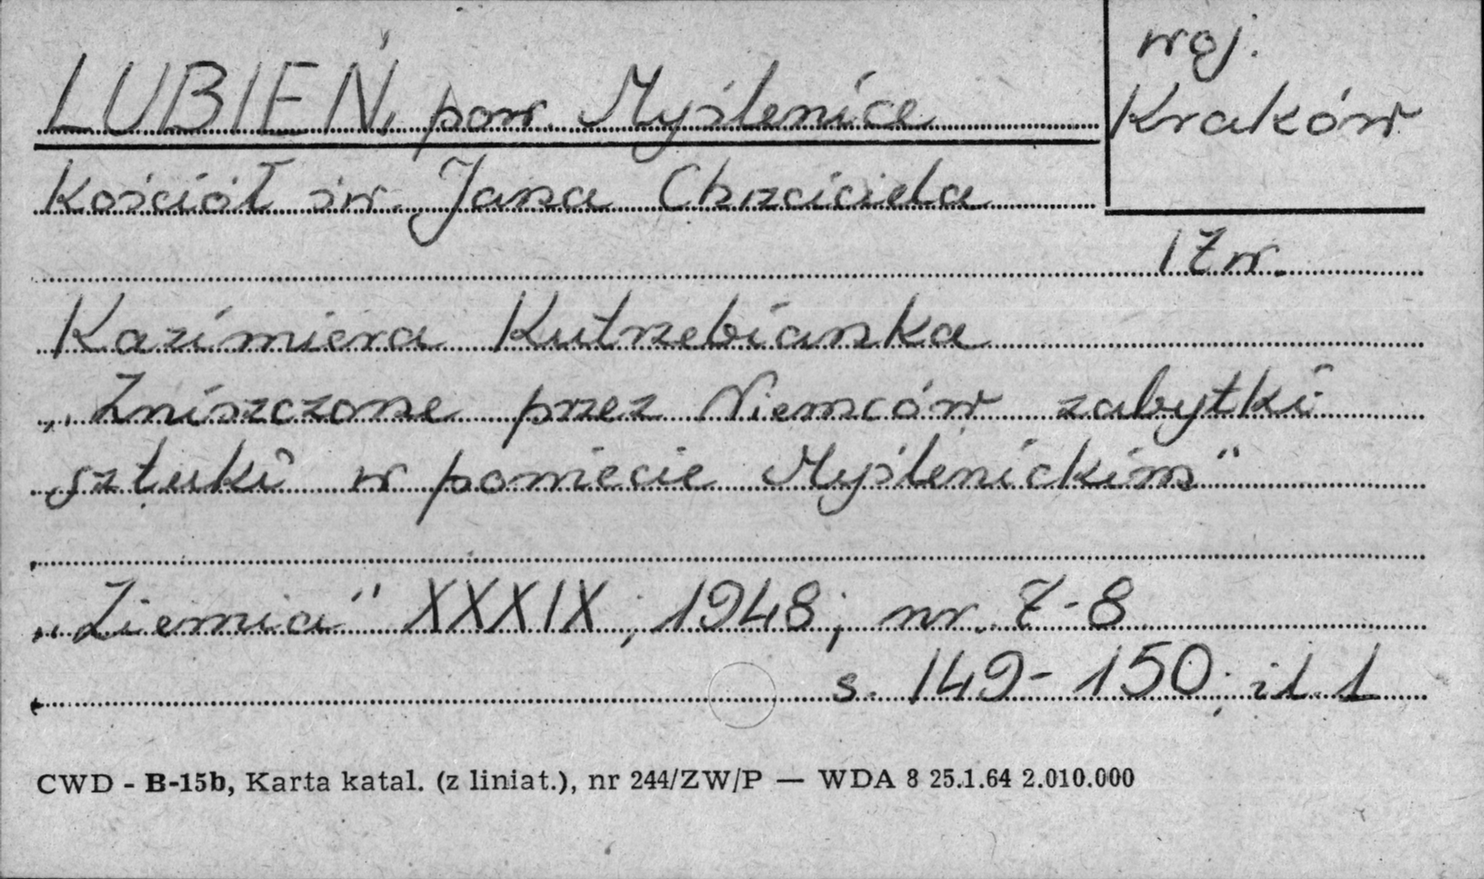 woj.
LUBIEŃ, pow. Myślenice
Kraków
Kościół św. Jana Chrzciciela
17 w.
Kazimiera Kutrzebianka
„Zniszczone przez Niemców zabytki
sztuki w powiecie Myślenickim"
„Ziemia" XXXIX, 1948, nr. 7-8
s. 149-150, il. 1
CWD - B-15b, Karta katal. (z liniat.), nr 244/ZW/P — WDA 8 25.1.64 2.010.000